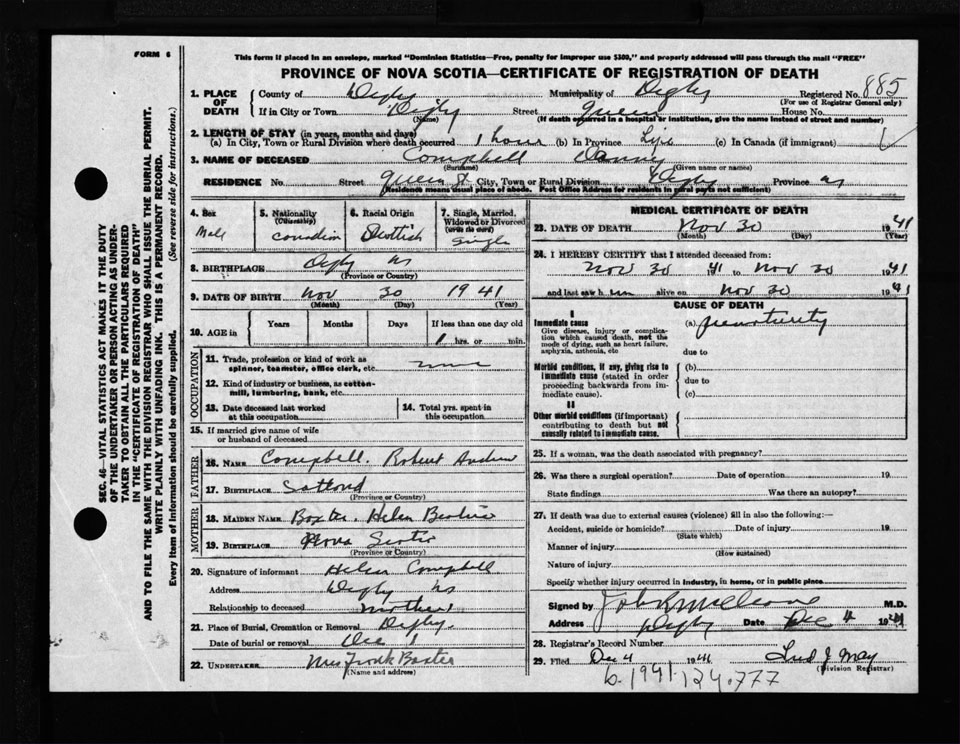 FORM 6
This form if placed in an envelope, marked "Dominion Statistics—Free, penalty for improper use $300," and properly addressed will pass through the mail "FREE"
PROVINCE OF NOVA SCOTIA—CERTIFICATE OF REGISTRATION OF DEATH
1. PLACE OF DEATH County of Digby Municipality of Digby Registered No. 885
(For use of Registrar General only)
If in City or Town Digby Street Queen House No.
(Name) (If death occurred in a hospital or institution, give the name instead of street and number)
2. LENGTH OF STAY (in years, months and days)
(a) In City, Town or Rural Division where death occurred 1 hour (b) In Province Life (c) In Canada (if immigrant)
3. NAME OF DECEASED Campbell Danny
(Surname) (Given name or names)
RESIDENCE No. Street Queen St City, Town or Rural Division Digby Province NS
(Residence means usual place of abode. Post Office Address for residents in rural parts not sufficient)
4. Sex Male
5. Nationality (Citizenship) Canadian
6. Racial Origin Scottish
7. Single, Married, Widowed or Divorced (write the word) Single
8. BIRTHPLACE Digby NS
(Province or Country)
9. DATE OF BIRTH Nov 30 1941
(Month) (Day) (Year)
10. AGE in Years Months Days If less than one day old
1 hrs. or min.
OCCUPATION
11. Trade, profession or kind of work as spinner, teamster, office clerk, etc. none
12. Kind of industry or business, as cotton-mill, lumbering, bank, etc.
13. Date deceased last worked at this occupation
14. Total yrs. spent in this occupation
15. If married give name of wife or husband of deceased
FATHER
16. NAME Campbell, Robert Andrew
17. BIRTHPLACE Scotland
(Province or Country)
MOTHER
18. MAIDEN NAME Baxter, Helen
19. BIRTHPLACE Nova Scotia
(Province or Country)
20. Signature of informant Helen Campbell
Address Digby NS
Relationship to deceased mother
21. Place of Burial, Cremation or Removal Digby
Date of burial or removal Dec 1
22. UNDERTAKER Mrs Frank Baxter
(Name and address)
MEDICAL CERTIFICATE OF DEATH
23. DATE OF DEATH Nov 30 1941
(Month) (Day) (Year)
24. I HEREBY CERTIFY that I attended deceased from:
Nov 30 1941 to Nov 30 1941
and last saw him alive on Nov 30 1941
CAUSE OF DEATH
I
Immediate cause
Give disease, injury or complication which caused death, not the mode of dying, such as heart failure, asphyxia, asthenia, etc
(a) prematurity
due to
Morbid conditions, if any, giving rise to immediate cause (stated in order proceeding backwards from immediate cause).
(b)
due to
(c)
II
Other morbid conditions (if important) contributing to death but not causally related to immediate cause.
25. If a woman, was the death associated with pregnancy?
26. Was there a surgical operation? Date of operation 19
State findings Was there an autopsy?
27. If death was due to external causes (violence) fill in also the following:—
Accident, suicide or homicide? Date of injury 19
(State which)
Manner of injury
(How sustained)
Nature of injury
Specify whether injury occurred in industry, in home, or in public place
Signed by M.D.
Address Digby Date Dec 4 1941
28. Registrar's Record Number
29. Filed Dec 4 1941
(Division Registrar)
b. 1941-124-777
SEC. 46—VITAL STATISTICS ACT MAKES IT THE DUTY
OF THE UNDERTAKER OR PERSON ACTING AS UNDER-
TAKER TO OBTAIN ALL THE PARTICULARS REQUIRED
IN THE "CERTIFICATE OF REGISTRATION OF DEATH"
AND TO FILE THE SAME WITH THE DIVISION REGISTRAR WHO SHALL ISSUE THE BURIAL PERMIT.
WRITE PLAINLY WITH UNFADING INK. THIS IS A PERMANENT RECORD.
Every item of information should be carefully supplied. (See reverse side for instructions.)